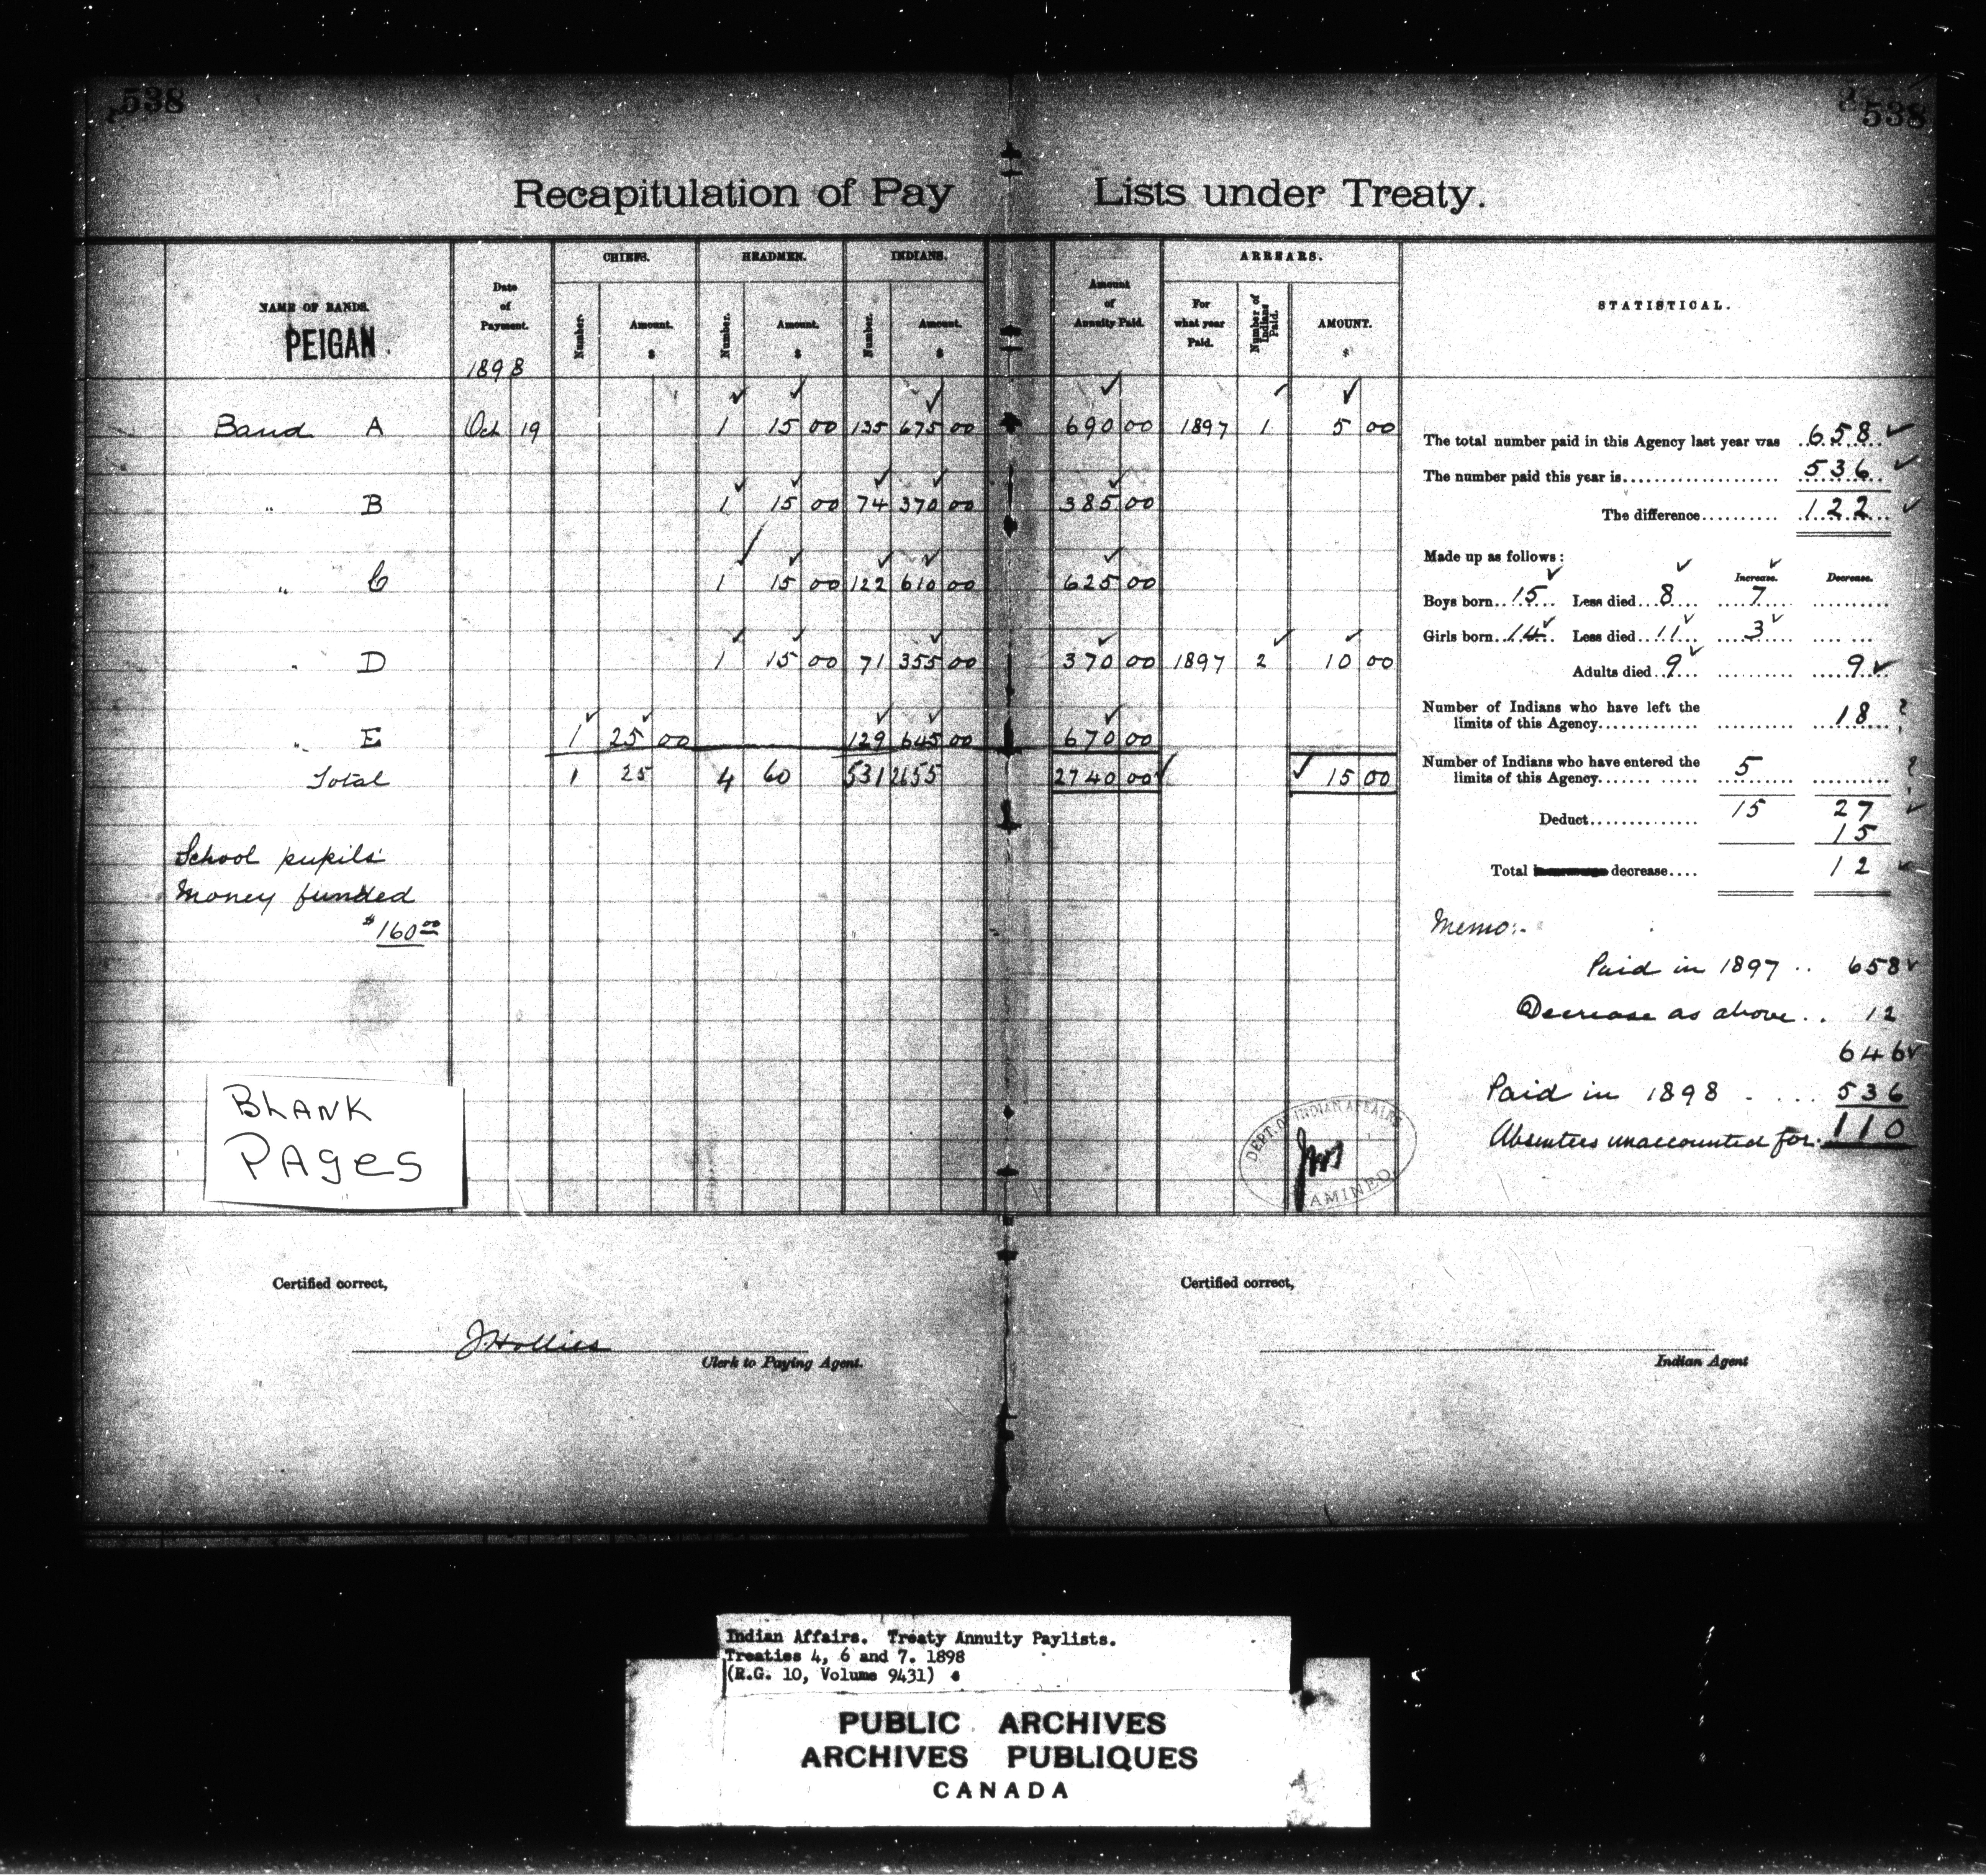 538
538
Recapitulation of Pay Lists under Treaty.
NAME OF BANDS.
PEIGAN.
Date of Payment.
1898
CHIEFS.
Number.
Amount.
$
HEADMEN.
Number.
Amount.
$
INDIANS.
Number.
Amount.
$
Amount of Annuity Paid.
ARREARS.
For what year Paid.
Number of Indians Paid.
AMOUNT.
$
STATISTICAL.
Band A Oct 19 1 15 00 135 675 00 690 00 1897 1 5 00
" B 1 15 00 74 370 00 385 00
" C 1 15 00 122 610 00 625 00
" D 1 15 00 71 355 00 370 00 1897 2 10 00
" E 1 25 00 129 645 00 670 00
Total 1 25 4 60 531 2655 2740 00 15 00
School pupils'
Money funded
$160.00
BLANK
PAges
The total number paid in this Agency last year was 658
The number paid this year is 536
The difference 122
Made up as follows:
Increase. Decrease.
Boys born 15 Less died 8 7
Girls born 14 Less died 11 3
Adults died 9 9
Number of Indians who have left the
limits of this Agency 18 ?
Number of Indians who have entered the
limits of this Agency 5 ?
15 27
Deduct 15
Total decrease 12
Memo:-
Paid in 1897 .. 658
Decrease as above .. 12
646
Paid in 1898 - .... 536
Absentees unaccounted for. 110
DEPT. OF INDIAN AFFAIRS
EXAMINED
Certified correct,
J. Hollies
Clerk to Paying Agent.
Certified correct,
Indian Agent
Indian Affairs. Treaty Annuity Paylists.
Treaties 4, 6 and 7. 1898
(R.G. 10, Volume 9431)
PUBLIC ARCHIVES
ARCHIVES PUBLIQUES
CANADA